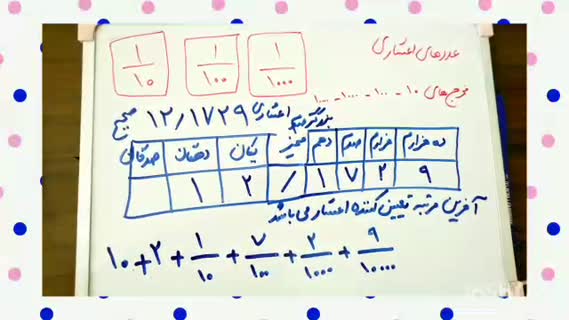 عددهای اعشاری
۱/۱۰ ۱/۱۰۰ ۱/۱۰۰۰
مخرج‌های ۱۰ - ۱۰۰ - ۱۰۰۰ - ۱۰۰۰۰
صحیح ۱۲/۱۷۲۹ اعشاری
بزرگتر
صدگان دهگان یکان ممیز دهم صدم هزارم ده هزارم
۱ ۲ / ۱ ۷ ۲ ۹
آخرین مرتبه تعیین کننده اعشار می باشد
۱۰ + ۲ + ۱/۱۰ + ۷/۱۰۰ + ۲/۱۰۰۰ + ۹/۱۰۰۰۰